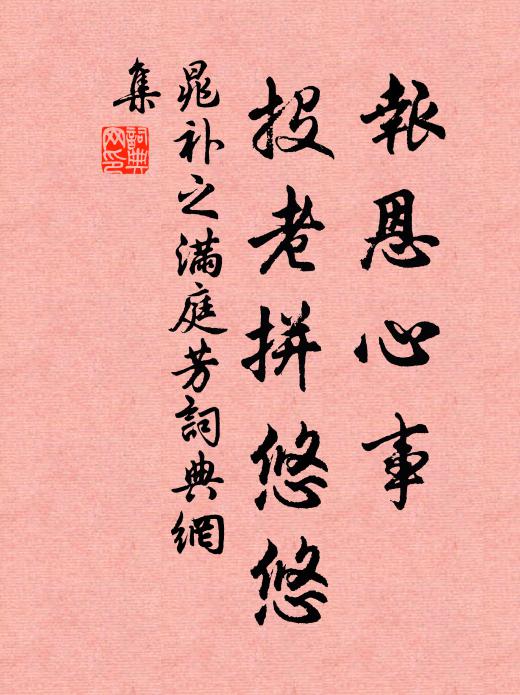 報恩心事
投老拼悠悠
晁补之滿庭芳詞典網
集
詞典網印